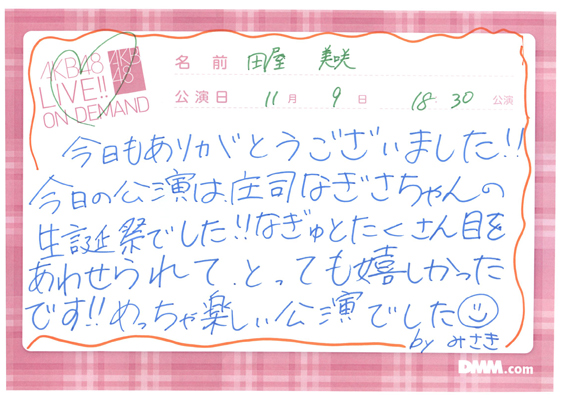 AKB48
LIVE!!
ON DEMAND
AKB
48
名前 田屋 美咲
公演日 11月 9日 18:30 公演
今日もありがとうございました!!
今日の公演は、庄司なぎさちゃんの
生誕祭でした!!なぎゅとたくさん目を
あわせられて、とっても嬉しかった
です!!めっちゃ楽しい公演でした☺
by みさき
DMM.com